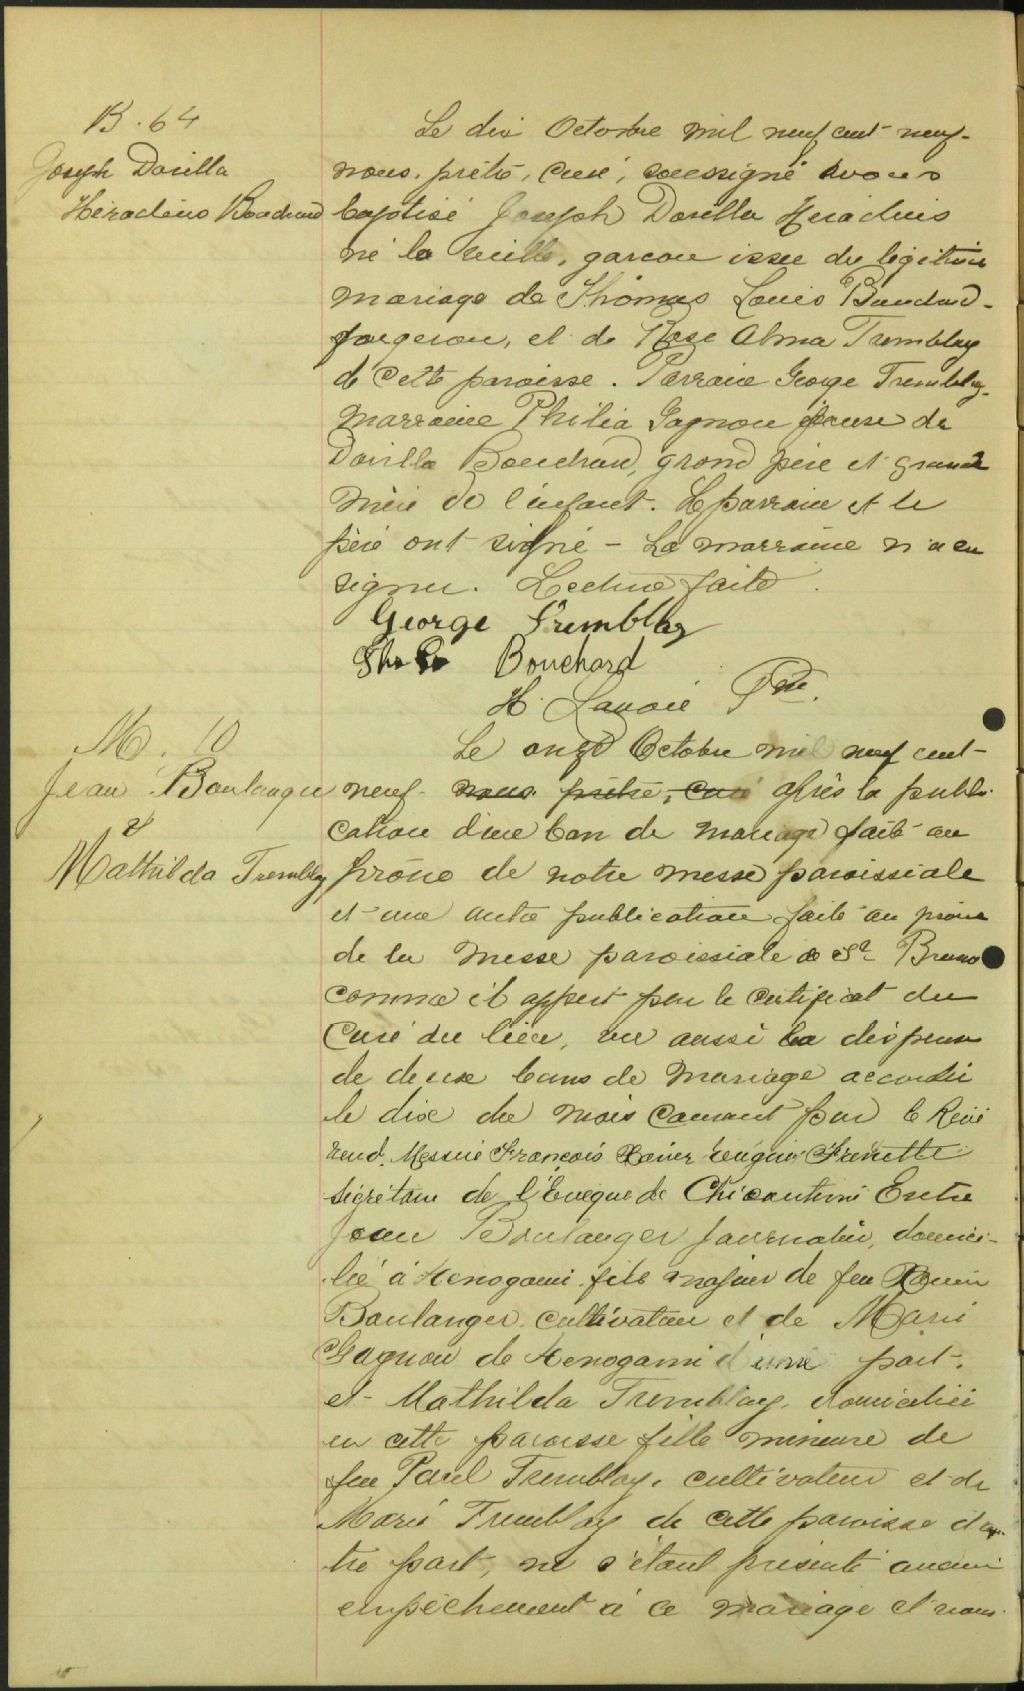 B. 64
Joseph Dorilla
Héraclius Bouchard
Le dix Octobre mil neuf cent neuf
nous, prêtre, curé, soussigné avons
baptisé Joseph Dorilla Heraclius
né la veille, garçon issu du légitime
mariage de Thomas Louis Bouchard
forgeron, et de Rose Alma Tremblay
de cette paroisse. Parrain George Tremblay.
Marraine Philia Gagnon épouse de
Dorilla Bouchard, grand père et grand
mère de l'enfant. Le parrain et le
père ont signé - La marraine n'a su
signer. Lecture faite.
George Tremblay
Bouchard
H. Lavoie Ptre.
M. 10
Jean Boulanger
&
Mathilda Tremblay
Le onze Octobre mil neuf cent
neuf nous prêtre, curé après la publi-
cation d'un ban de mariage fait au
prône de notre messe paroissiale
et une autre publication faite au prône
de la messe paroissiale de St Bruno
comme il appert par le certificat du
Curé du lieu, vu aussi la dispense
de deux bans de mariage accordée
le dix du mois courant par le Révé
rend. Messire François Xavier Eugène Frenette
secrétaire de l'Evêque de Chicoutimi Entre
Jean Boulanger journalier, domici-
lié à Kenogami fils majeur de feu
Boulanger, cultivateur et de Marie
Gagnon de Kenogami d'une part.
et Mathilda Tremblay, domiciliée
en cette paroisse fille mineure de
feu Paul Tremblay, cultivateur et de
Marie Tremblay de cette paroisse d'au
tre part, ne s'étant présenté aucun
empêchement à ce mariage et nous